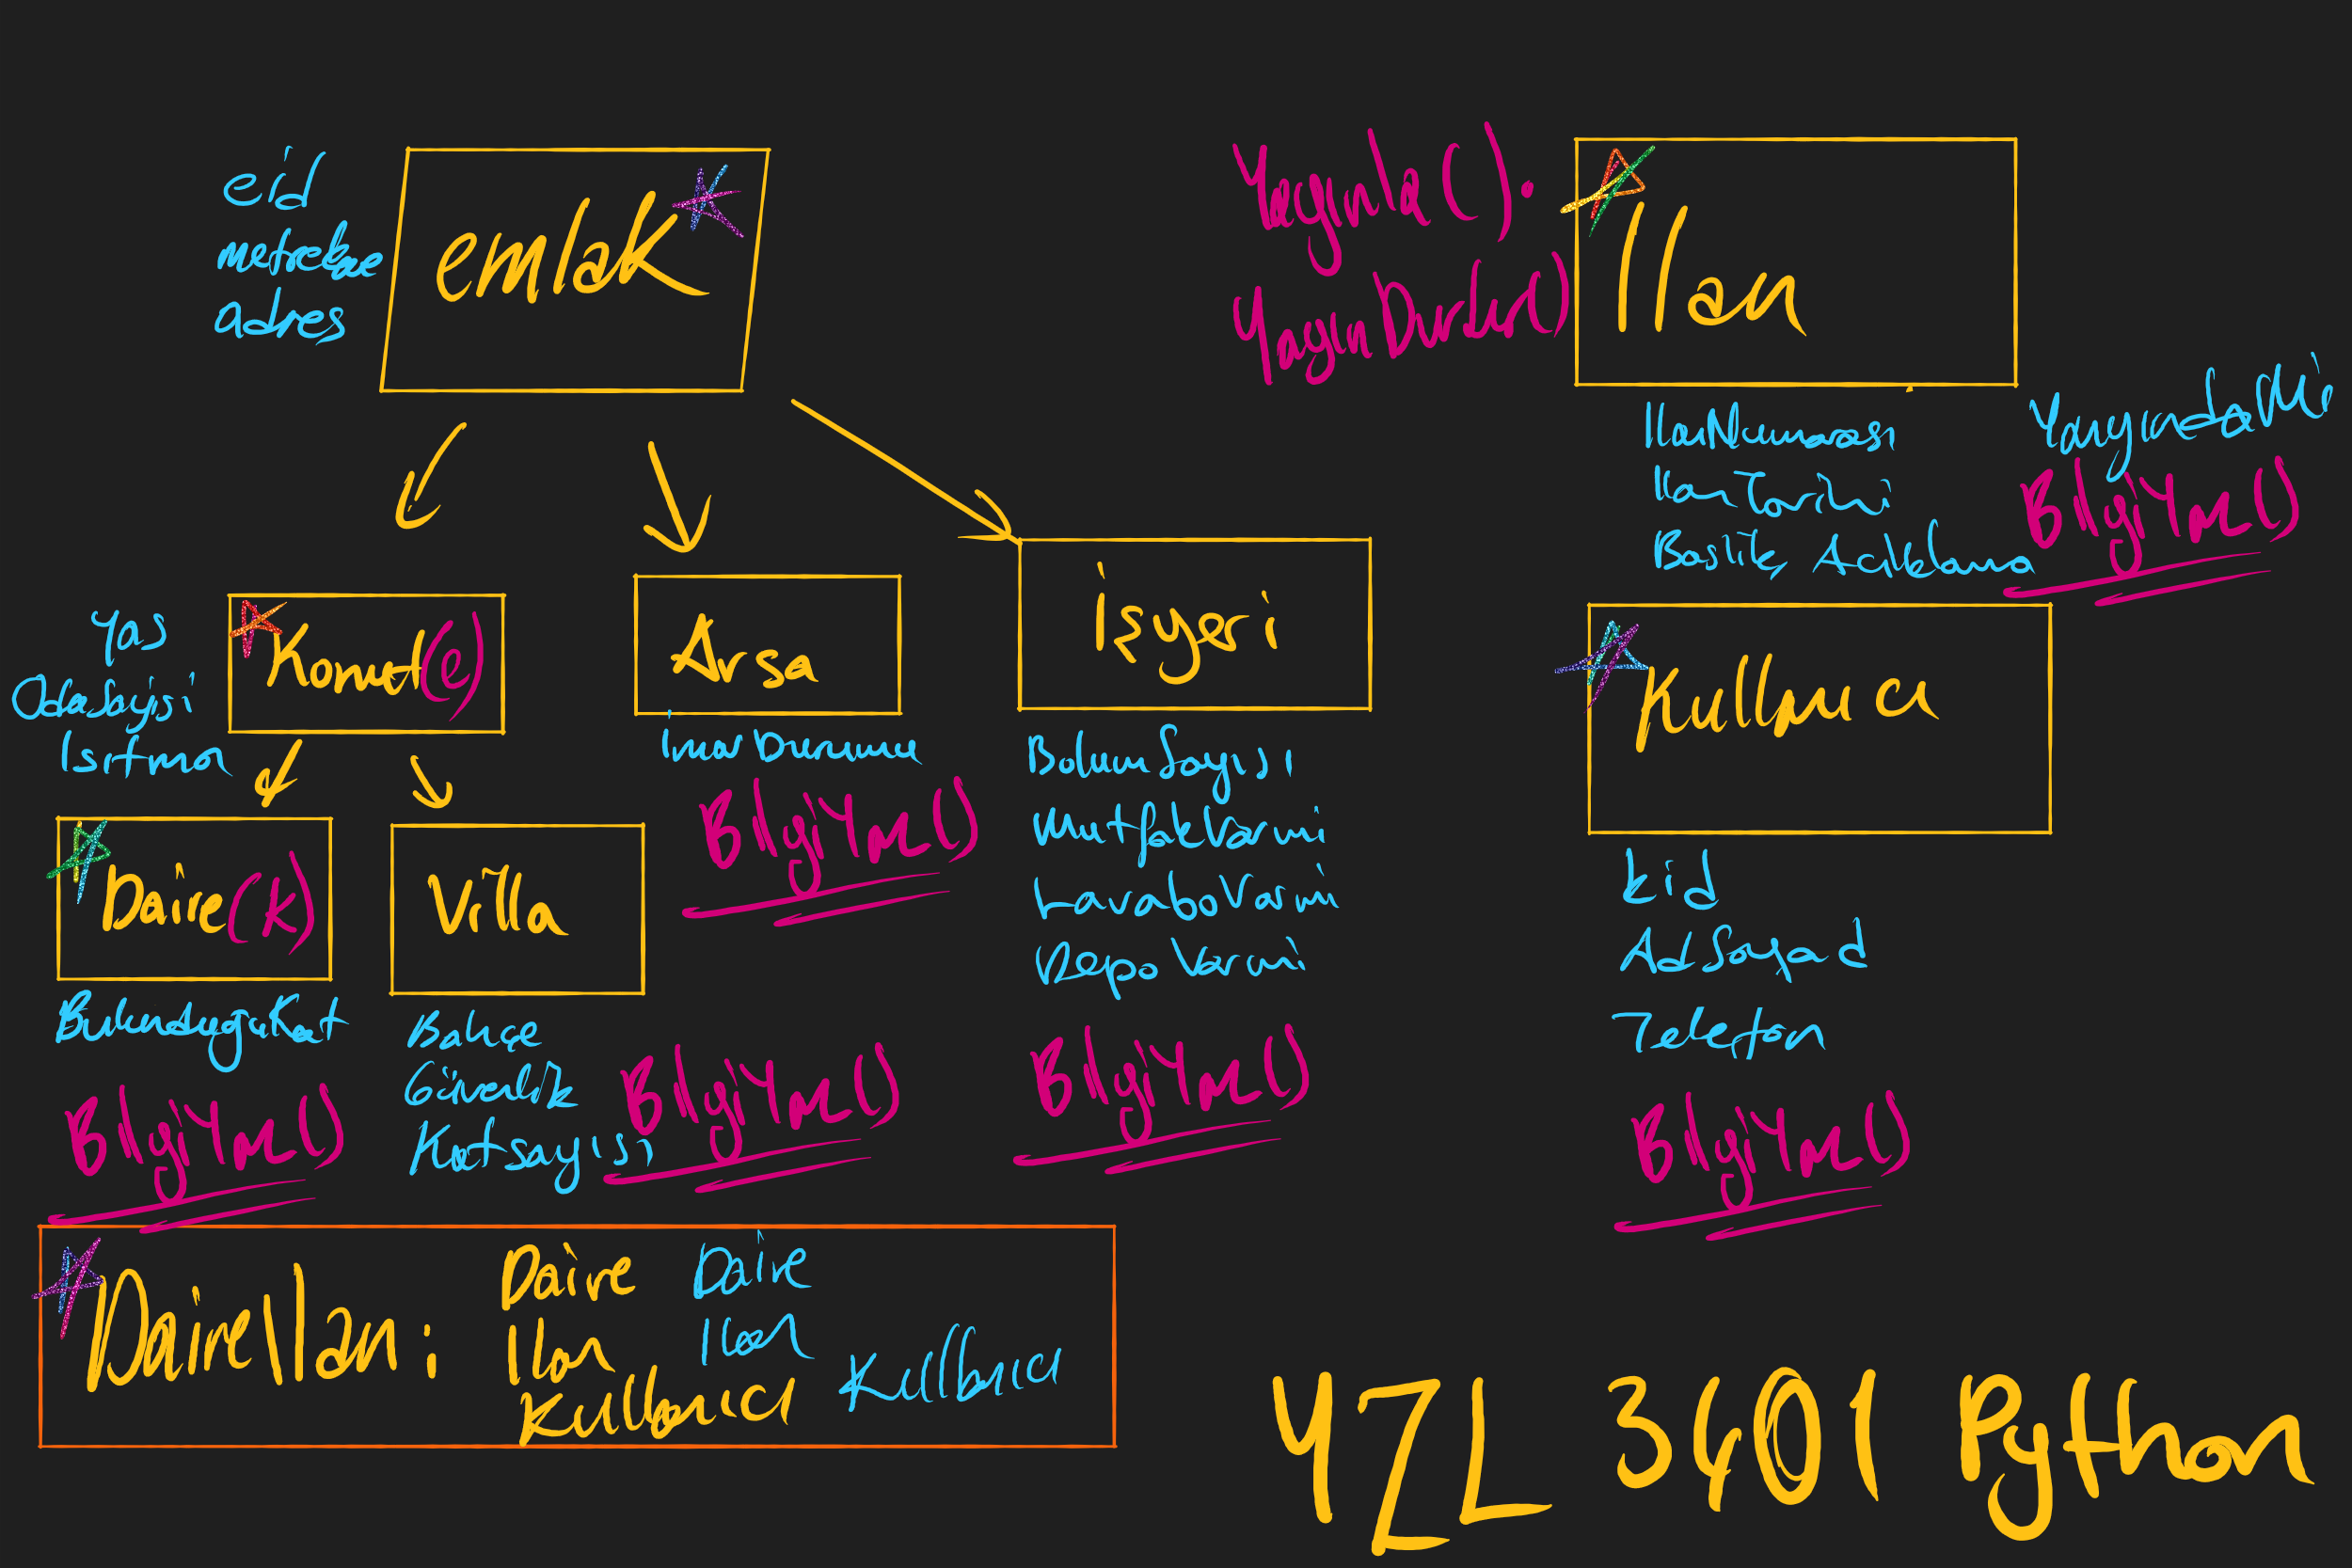 eid
metrekare
adres
emlak
Yayınla():
YayınDurdur()
Ilan
IlanNumarası
IlanTarihi
Baslik Aciklama
YayındaMi
BilgiYaz()
Yas
OdaSayisi
Isitma
Konut(e)
Arsa
Imar Durumu
BilgiYaz()
İsyeri
Bolum Sayısı
MutfakVarmi
LavaboVarmi
Depo Varmi
BilgiYaz()
Kullanıcı
kid
AdSoyad
Telefon
BilgiYaz()
Daire(k)
BulunduguKat
BilgiYaz()
Villa
Bahce
Güvenlik
KatSayısı
BilgiYaz()
DaireIlan:
Daire
Ilan
Kullanıcı
Daire
Ilan
Kullanıcı
YZL 3401 Python